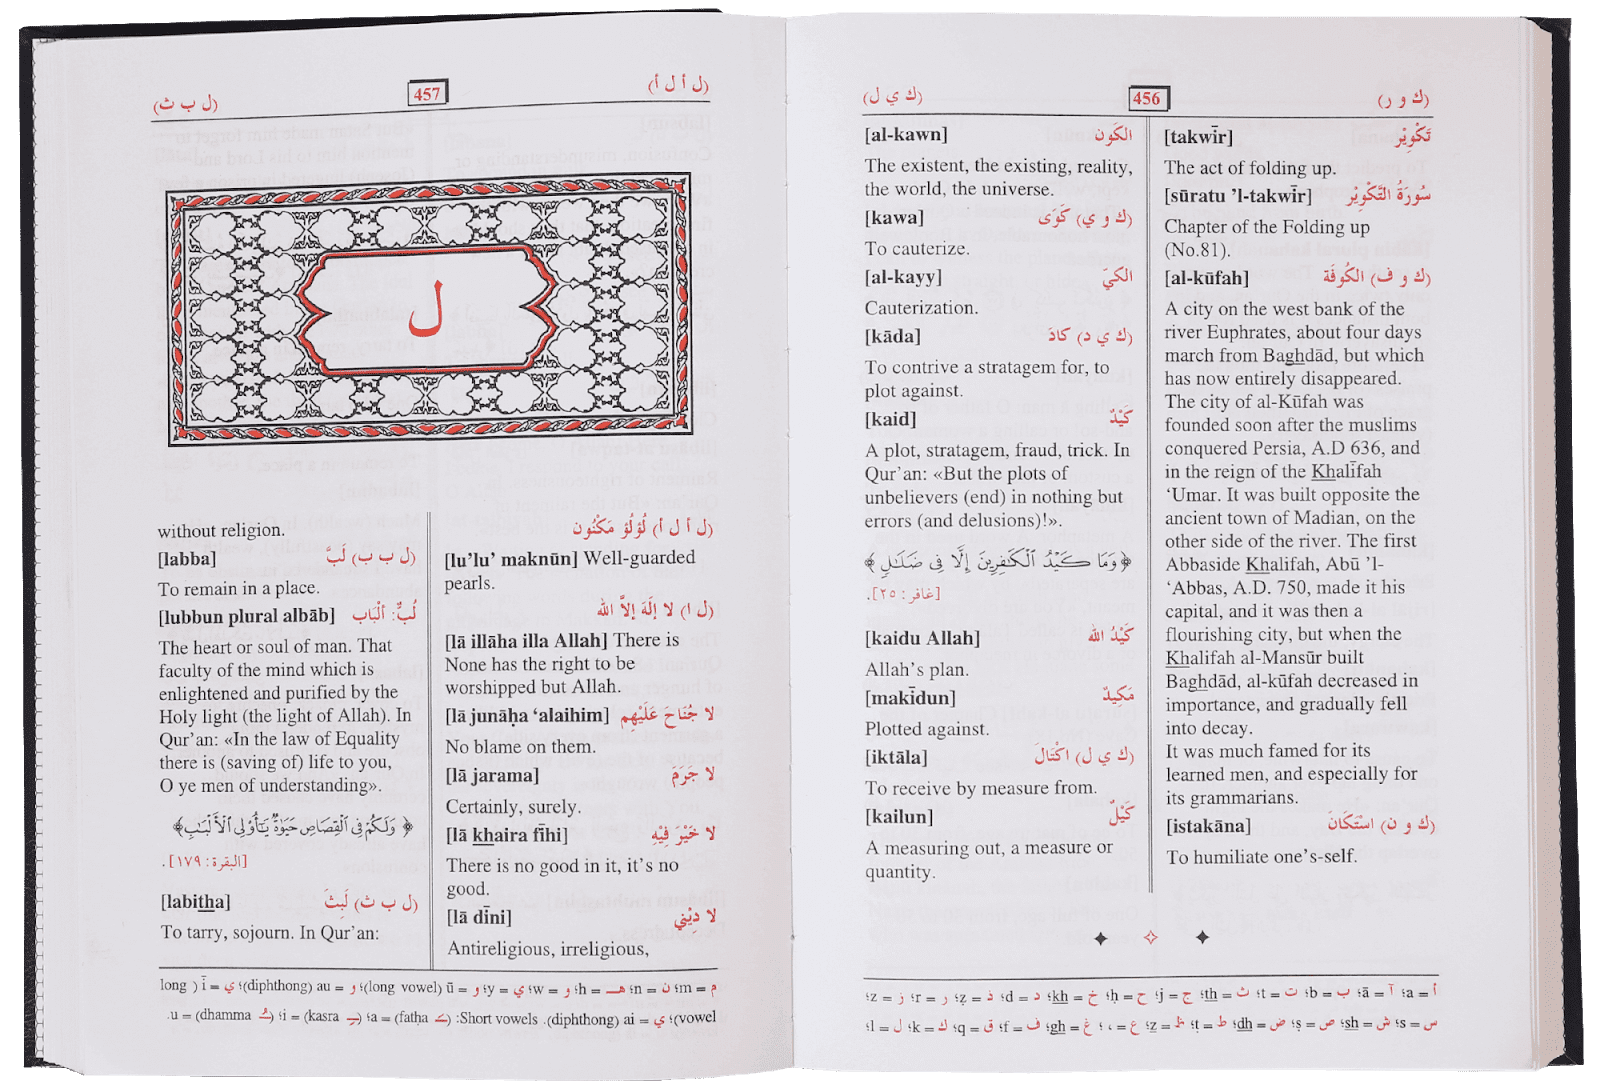 (ك و ر) 456 (ك ي ل)
[takwīr] تَكْوِيْر
The act of folding up.
[sūratu ’l-takwīr] سُورَةُ التَّكْوِيْر
Chapter of the Folding up
(No.81).
[al-kūfah] (ك و ف) الكُوفَة
A city on the west bank of the
river Euphrates, about four days
march from Baghdād, but which
has now entirely disappeared.
The city of al-Kūfah was
founded soon after the muslims
conquered Persia, A.D 636, and
in the reign of the Khalīfah
‘Umar. It was built opposite the
ancient town of Madian, on the
other side of the river. The first
Abbaside Khalifah, Abū ’l-
‘Abbas, A.D. 750, made it his
capital, and it was then a
flourishing city, but when the
Khalifah al-Mansūr built
Baghdād, al-kūfah decreased in
importance, and gradually fell
into decay.
It was much famed for its
learned men, and especially for
its grammarians.
[istakāna] (ك و ن) اسْتَكَانَ
To humiliate one’s-self.
[al-kawn] الكَون
The existent, the existing, reality,
the world, the universe.
[kawa] (ك و ي) كَوَى
To cauterize.
[al-kayy] الكَيّ
Cauterization.
[kāda] (ك ي د) كادَ
To contrive a stratagem for, to
plot against.
[kaid] كَيْدٌ
A plot, stratagem, fraud, trick. In
Qur’an: «But the plots of
unbelievers (end) in nothing but
errors (and delusions)!».
﴿وَمَا كَيْدُ ٱلْكَٰفِرِينَ إِلَّا فِى ضَلَٰلٍ﴾
[غافر: ٢٥].
[kaidu Allah] كَيْدُ الله
Allah’s plan.
[makīdun] مَكِيدٌ
Plotted against.
[iktāla] (ك ي ل) اكْتَالَ
To receive by measure from.
[kailun] كَيْلٌ
A measuring out, a measure or
quantity.
أ = a؛ آ = ā؛ ب = b؛ ت = t؛ ث = th؛ ج = j؛ ح = ḥ؛ خ = kh؛ د = d؛ ذ = ẓ؛ ر = r؛ ز = z؛
س = s؛ ش = sh؛ ص = ṣ؛ ض = dh؛ ط = ṭ؛ ظ = ẓ؛ ع = ‘؛ غ = gh؛ ف = f؛ ق = q؛ ك = k؛ ل = l؛
(ل أ ل أ) 457 (ل ب ث)
ل
(ل أ ل أ) لُؤلُؤ مَكْنُون
[lu’lu’ maknūn] Well-guarded
pearls.
(ل ا) لا إلَهَ إلاَّ الله
[lā illāha illa Allah] There is
None has the right to be
worshipped but Allah.
[lā junāḥa ‘alaihim] لا جُنَاحَ عَلَيْهِم
No blame on them.
[lā jarama] لا جَرَمَ
Certainly, surely.
[lā khaira fīhi] لا خَيْرَ فِيْهِ
There is no good in it, it’s no
good.
[lā dīni] لا دِيْني
Antireligious, irreligious,
without religion.
[labba] (ل ب ب) لَبَّ
To remain in a place.
[lubbun plural albāb] لُبٌّ: ألْبَاب
The heart or soul of man. That
faculty of the mind which is
enlightened and purified by the
Holy light (the light of Allah). In
Qur’an: «In the law of Equality
there is (saving of) life to you,
O ye men of understanding».
﴿وَلَكُمْ فِى ٱلْقِصَاصِ حَيَوٰةٌ يَٰٓأُو۟لِى ٱلْأَلْبَٰبِ﴾
[البقرة: ١٧٩].
[labitha] (ل ب ث) لَبِثَ
To tarry, sojourn. In Qur’an:
م = m؛ ن = n؛ هـ = h؛ و = w؛ ي = y؛ و = ū (long vowel)؛ و = au (diphthong)؛ ي = ī (long
vowel)؛ ي = ai (diphthong). Short vowels: (fatḥa ـَ) = a؛ (kasra ـِ) = i؛ (dhamma ـُ) = u.